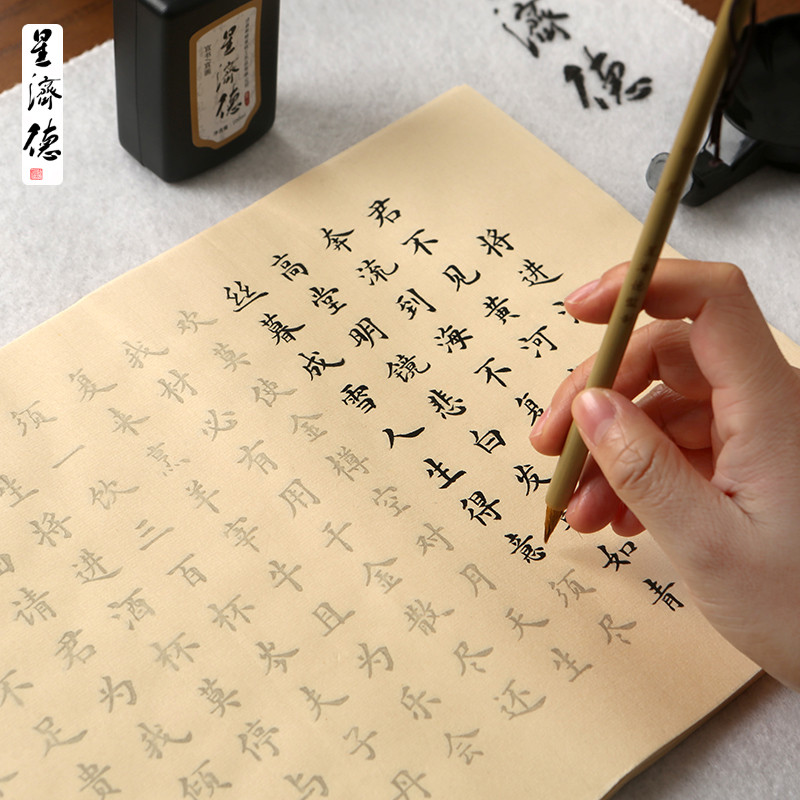 星濟德
星濟德
濟德
将进
君不见黄河
奔流到海不复
高堂明镜悲白发 如青
丝暮成雪人生得意须尽
欢莫使金樽空对月天生
我材必有用千金散尽还
复来烹羊宰牛且为乐会
须一饮三百杯岑夫子丹
生将进酒杯莫停与
请君为我倾
不足贵